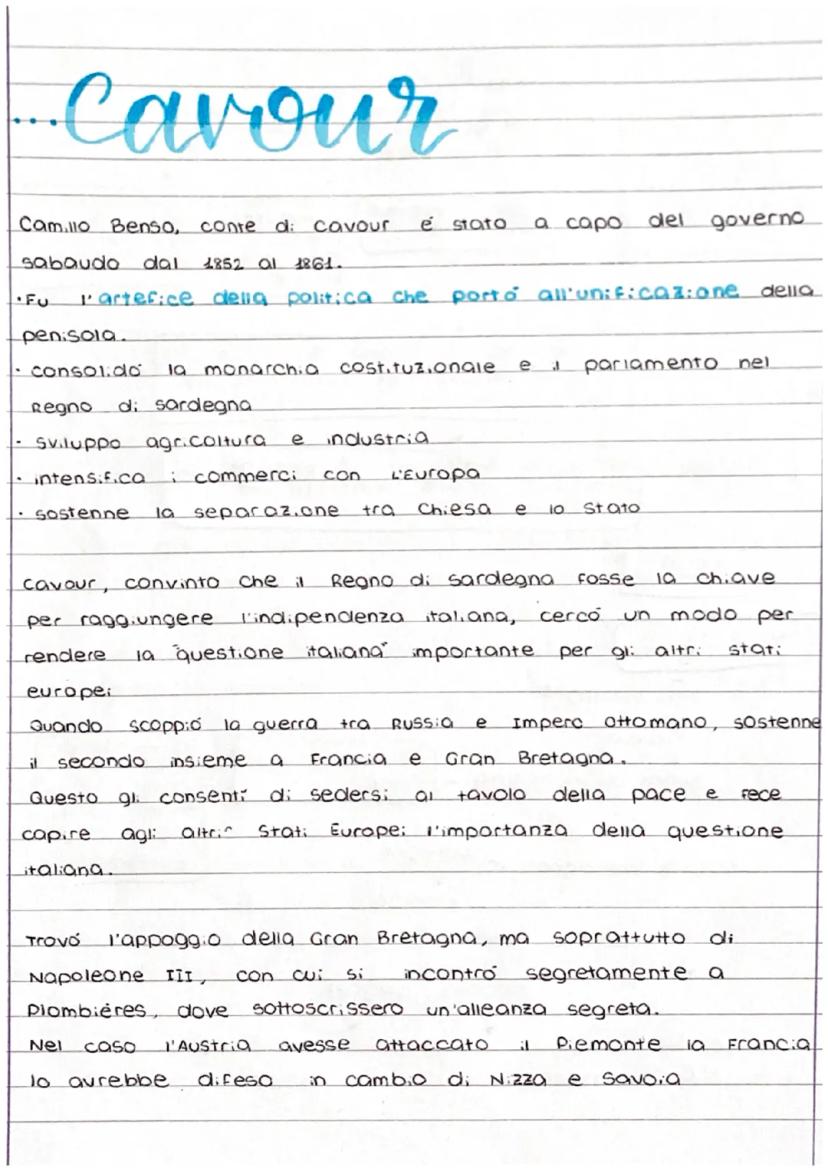 ...Cavour
Camillo Benso, conte di cavour é stato a capo del governo
sabaudo dal 1852 al 1861.
•Fu l'artefice della politica che portó all'unificazione della
penisola.
• consolidó la monarchia costituzionale e il parlamento nel
Regno di sardegna
• sviluppo agricoltura e industria
• intensifica i commerci con l'Europa
• sostenne la separazione tra Chiesa e lo Stato
Cavour, convinto che il Regno di sardegna fosse la chiave
per raggiungere l'indipendenza italiana, cercó un modo per
rendere la "questione italiana" importante per gli altri stati
europei
Quando scoppió la guerra tra Russia e Impero Ottomano, sostenne
il secondo insieme a Francia e Gran Bretagna.
Questo gli consentí di sedersi al tavolo della pace e fece
capire agli altri Stati Europei l'importanza della questione
italiana.
Trovó l'appoggio della Gran Bretagna, ma soprattutto di
Napoleone III, con cui si incontró segretamente a
Plombiéres, dove sottoscrissero un'alleanza segreta.
Nel caso l'Austria avesse attaccato il Piemonte la Francia
lo avrebbe difeso in cambio di Nizza e Savoia